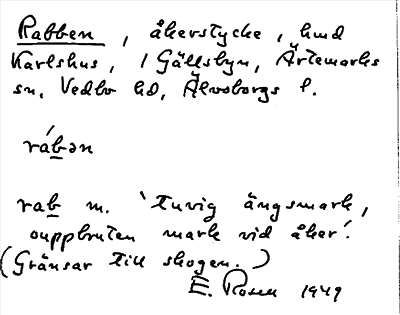 Rabben, åkerstycke, hmd
Karlshus, 1 Gällsbyn, Ärtemarks
sn, Vedbo hd, Älvsborgs l.
rábən
rab m. 'tuvig ängsmark,
ouppbruten mark vid åker'.
(Gränsar till skogen.)
E. Rosell 1949